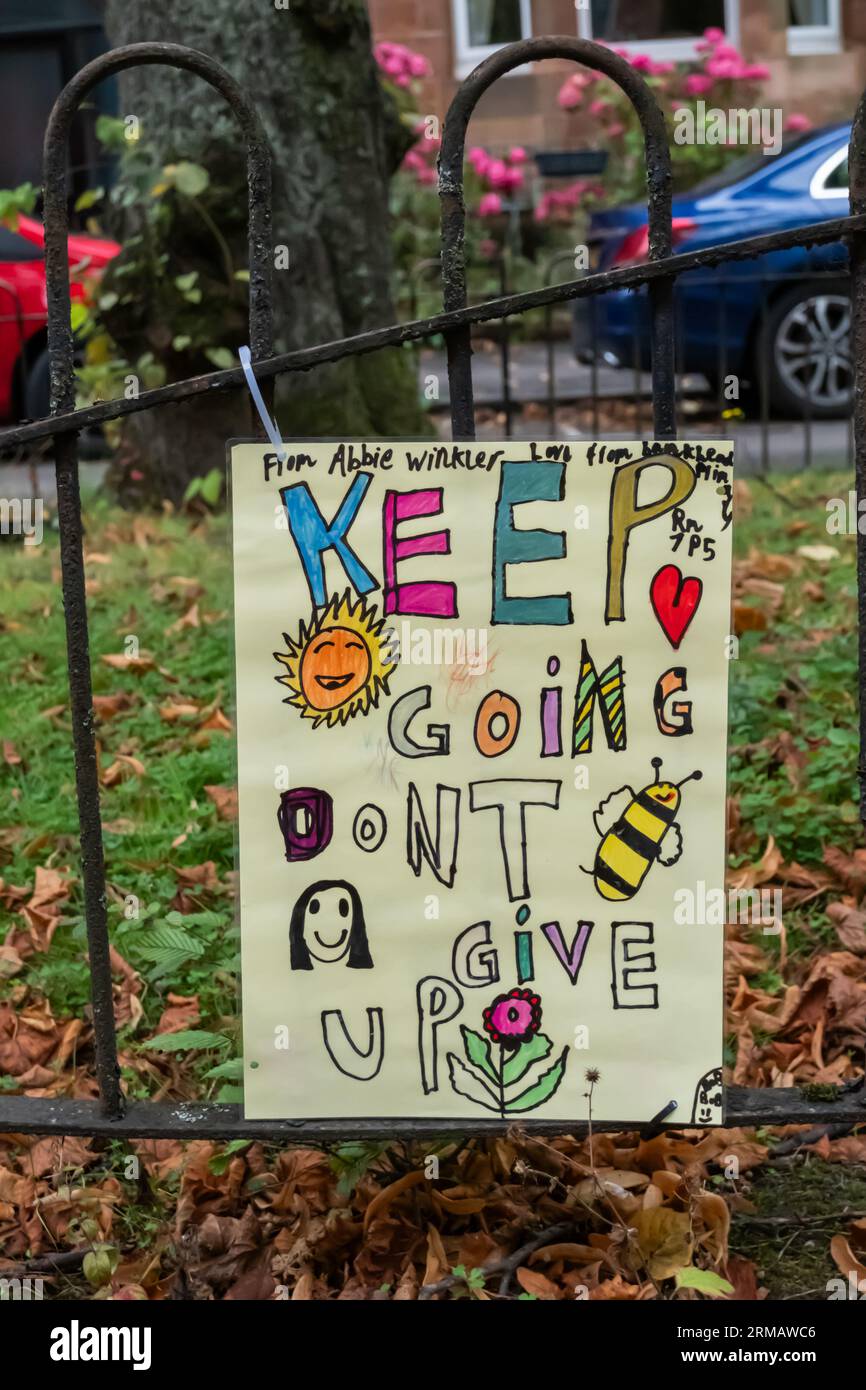 From Abbie Winkler Love from
Rm
7P5
KEEP
GOiNG
DONT
GiVE
UP
alamy
Image ID: 2RMAWC6
www.alamy.com